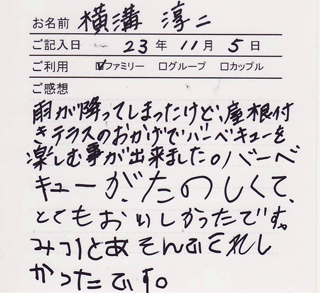 お名前 横溝 淳二
ご記入日 23 年 11 月 5 日
ご利用 ☑ファミリー □グループ □カップル
ご感想
雨が降ってしまったけど、屋根付
きテラスのおかげでバーベキューを
楽しむ事が出来ました。バーベ
キューが、たのしくて、
とてもおいしかったです。
みつとあそんふくれし
かったてす。